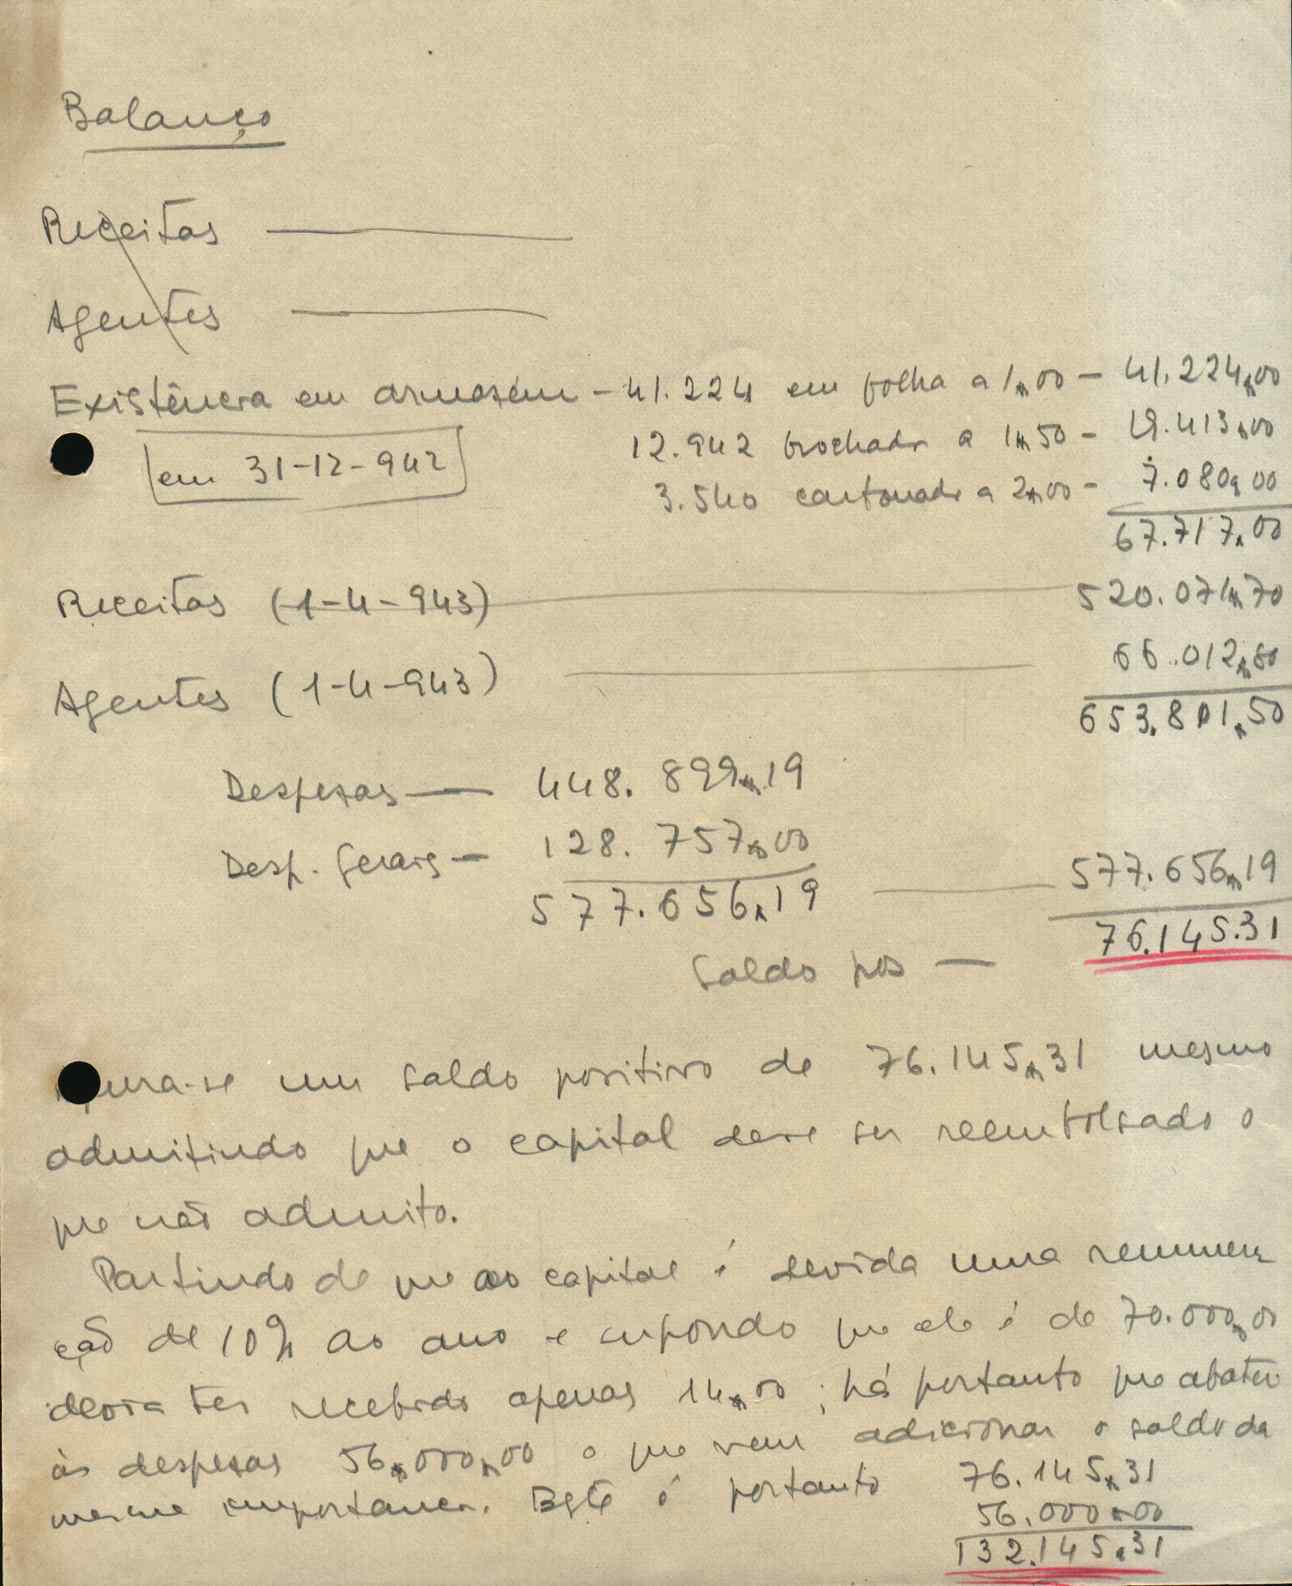 Balanço
Receitas
Agentes
Existência em armazém - 41.224 em folha a 1$00 - 41.224$00
em 31-12-942
12.942 brochados a 1$50 - 19.413$00
3.540 cartonados a 2$00 - 7.080$00
67.717$00
Receitas (1-4-943) 520.071$70
Agentes (1-4-943) 66.012$80
653.801$50
Despezas — 448.899$19
Desp. Gerais — 128.757$00
577.656$19 — 577.656$19
Saldo pos — 76.145.31
pura-se um saldo positivo de 76.145$31 mesmo
admitindo que o capital deve ser reembolsado o
que não admito.
Partindo de que ao capital é devida uma remunera
ção de 10% ao ano e supondo que ele é de 70.000$00
devia ter recebido apenas 14$00; há portanto que abater
às despezas 56$000$00 o que vem adicionar o saldo da
mesma importancia. Este é portanto 76.145$31
56.000$00
132.145$31